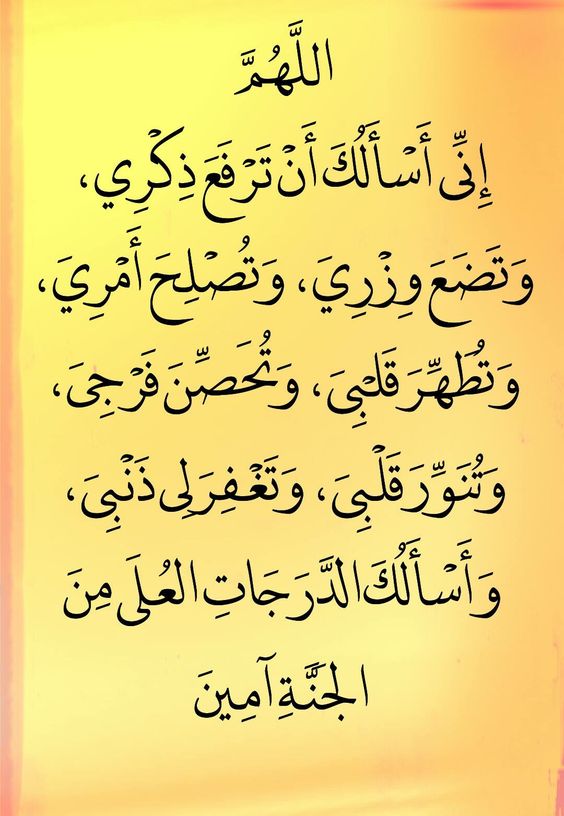 اللَّهُمَّ
إِنِّى أَسْأَلُكَ أَنْ تَرْفَعَ ذِكْرِي،
وَتَضَعَ وِزْرِيَ، وَتُصْلِحَ أَمْرِيَ،
وَتُطَهِّرَ قَلْبِىَ، وَتُحَصِّنَ فَرْجِىَ،
وَتُنَوِّرَ قَلْبِىَ، وَتَغْفِرَ لِى ذَنْبِىَ،
وَأَسْأَلُكَ الدَّرَجَاتِ العُلَى مِنَ
الجَنَّةِ آمِينَ